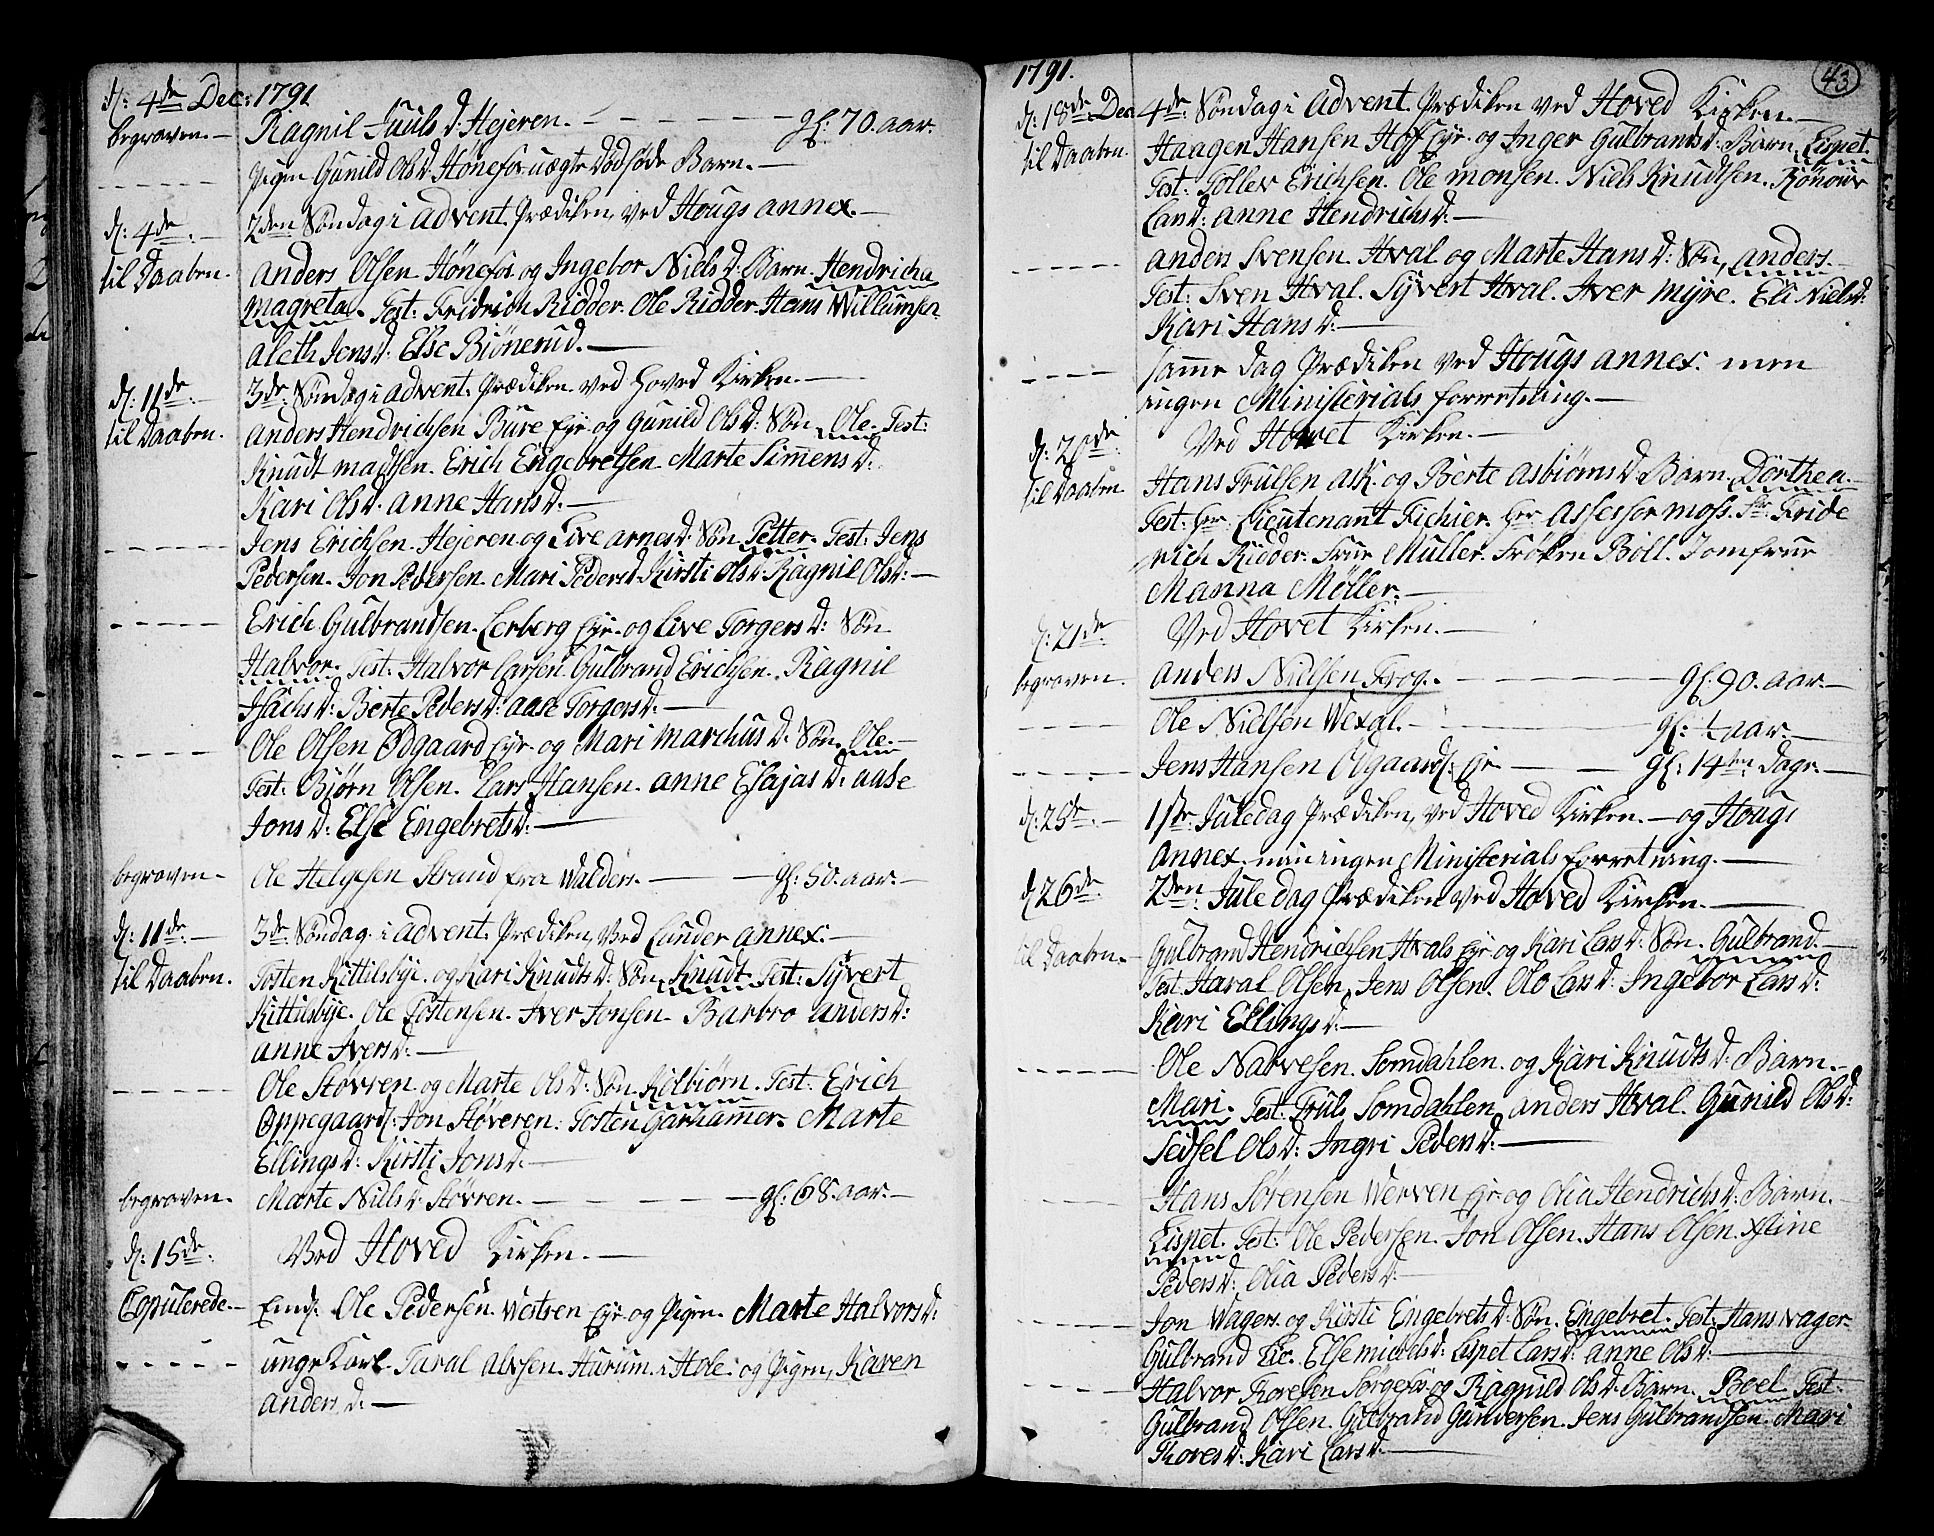 d: 4de Dec: 1791
begraven. Ragnil Juuls d. Hejeren. gl: 70. aar.
Pigen Gunild Ols d. Hönefos uægte Dödföde Barn.
d: 4de 2den Söndag i advent. Prædiken, ved Hougs annex.
til Daaben. Anders Olsen Hönefos og Ingebor Niels d: Barn. Hendricha
Magreta. Test: Fridrich Ridder. Ole Ridder. Hans Willumsen
Aleth Jens d: Else Biönerud.
d: 11de 3de Söndag i advent. Prædiken ved Hoved Kirken.
til Daaben. Anders Hendrichsen Bure Ejr og Gunild Ols d: Sön Ole. Test:
Knudt Madsen. Erich Engebretsen. Marte Simens d:
Kari Ols d. anne Hans d.
Jens Erichsen. Hejeren og Live arnes d. Sön Petter. Test: Jens
Pedersen. Jon Pedersen. Mari Peders d. Kirsti Ols d. Ragnil Ols d:
Erich Gulbrandsen. Lerberg Ejr. og Live Torgers d: Sön
Halvor. Test: Halvor Larsen. Gulbrand Erichsen. Ragnil
Isachs d: Berte Peders d: aase Torgers d.
Ole Olsen Odgaard Ejr. og Mari Marchus d. Sön. Ole.
Test: Björn Olsen. Lars Hansen. anne Esajas d: aase
Jons d: Else Engebrets d:
begraven. Ole Helgesen Strand fra Walders. gl: 50. aar.
d: 11de 3de Söndag i advent. Prædiken, ved Lunder annex.
til Daaben. Tosten Kittilsbye. og Kari Knudts d: Sön Knudt. Test: Syvert
Kittilsbye. Ole Tostensen. Iver Jonsen. Barbro anders d:
anne Ivers d.
Ole Stövren. og Marte Ols d: Sön. Kolbiörn. Test: Erich
Oppegaard. Jon Stöveren. Tosten Garhammer. Marte
Ellings d: Kirsti Jons d.
begraven. Marte Niels d. Stövren. gl: 68. aar.
d: 15de Ved Hoved Kirken.
Copulerede. Enk: Ole Pedersen. Westren Ejr og Pigen. Marte Halvors d:
unge Karl. Taral alvsen. Hurum i Hole. og Pigen, Karen
anders d.
1791. 43
d: 18de Dec 4de Söndag i Advent. Prædiken ved Hoved Kirken.
til Daaben. Haagen Hansen Hof Ejr. og Inger Gulbrands d: Barn Lispet.
Test: Tollev Erichsen. Ole Monsen. Niels Knudtsen. Rönour
Lars d: anne Hendrichs d.
anders Svensen. Hval og Marte Hans d: Sön, anders.
Test: Sven Hval. Syvert Hval. Iver Myre. Eli Niels d:
Kari Hans d:
samme Dag Prædiken ved Hougs annex: men
ingen Ministerials forretning.
d: 20de Ved Hovet Kirken.
til Daaben. Hans Trulsen Ask og Berte Asbiörns d. Barn. Dorthea.
Test: Hr: Lieutenant Fichier. Hr: Assessor Moss. Hr: Fride
rich Ridder. Frue Muller. Fröken Boll. Jomfrue
Manna Möller.
d: 21de Ved Hovet Kirken.
begraven. Anders Nielsen Frog. gl: 90. aar.
Ole Nielsen Wexal. gl: ½ aar.
Jens Hansen Odgaard: Ejr gl: 14ten dage.
d: 25de 1ste Juledag Prædiken, ved Hoved Kirken. og Hougs
Annex. men ingen Ministerials forretning.
d 26de 2den Juledag Prædiken ved Hoved Kirken.
til Daaben. Gulbrand Hendrichsen Hvals Ejr og Kari Lars d: Sön. Gulbrand.
Test. Haral Olsen, Jens Olsen. Olo Lars d: Ingebor Lars d:
Kari Ellings d.
Ole Narvesen. Somdahlen. og Kari Knudts d: Barn.
Mari. Test: Truls Somdahlen, anders Hval. Gunild Ols d:
Sedsel Ols d: Ingri Peders d:
Hans Sörensen Werven Ejr. og Olia Hendrichs d: Barn.
Lispet. Test: Ole Pedersen. Jon Olsen. Hans Olsen. Xstine
Peders d: Olia Peders d:
Jon Wagers og Kirsti Engebrets d: Sön. Engebret. Test: Hans wager.
Gulbrand Lie. Else Mickels d: Lispet Lars d: anne Ols d:
Halvor Thoresen Sorgefos og Ragnild Ols d: Barn. Boel. Test:
Gulbrand Olsen. Gulbrand Gundersen. Jens Gulbrandsen. Mari
Thores d: Kari Lars d.